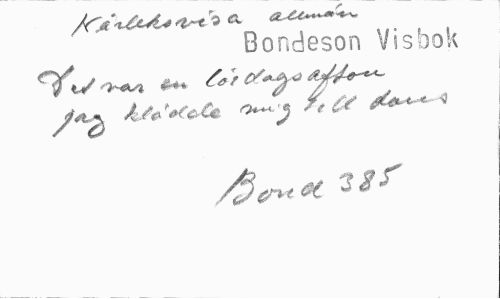 Kärleksvisa allmän
Bondeson Visbok
Det var en lördagsafton
jag klädde mig till dans
Bond 385